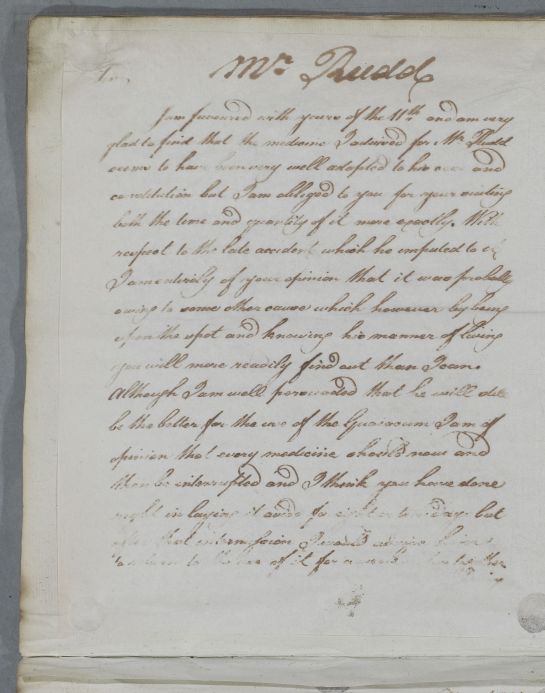 Mr. Rudd
Sir,
I am favoured with yours of the 11th and am very
glad to find that the medicine I advised for Mr. Rudd
seems to have been very well adapted to his case and
constitution but I am obliged to you for your
both the time and quantity of it more exactly. With
respect to the late accident which he imputed to it
I am entirely of your opinion that it was probably
owing to some other cause which however by being
upon the spot and knowing his manner of living
you will more readily find out than I can.
Although I am well perswaded that he will still
be the better for the use of the Guaiacum I am of
opinion that every medicine should now and
then be interrupted and I think you have done
right in laying it aside for eight or ten days but
after that intermission I would advise him
to return to the use of it for a